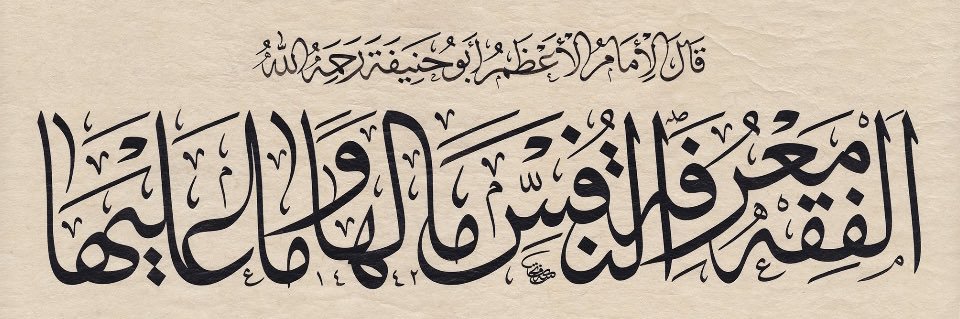 قَالَ الْإِمَامُ الْأَعْظَمُ أَبُو حَنِيفَةَ رَحِمَهُ اللهُ
اَلْفِقْهُ مَعْرِفَةُ النَّفْسِ مَا لَهَا وَمَا عَلَيْهَا
١٤٤٢